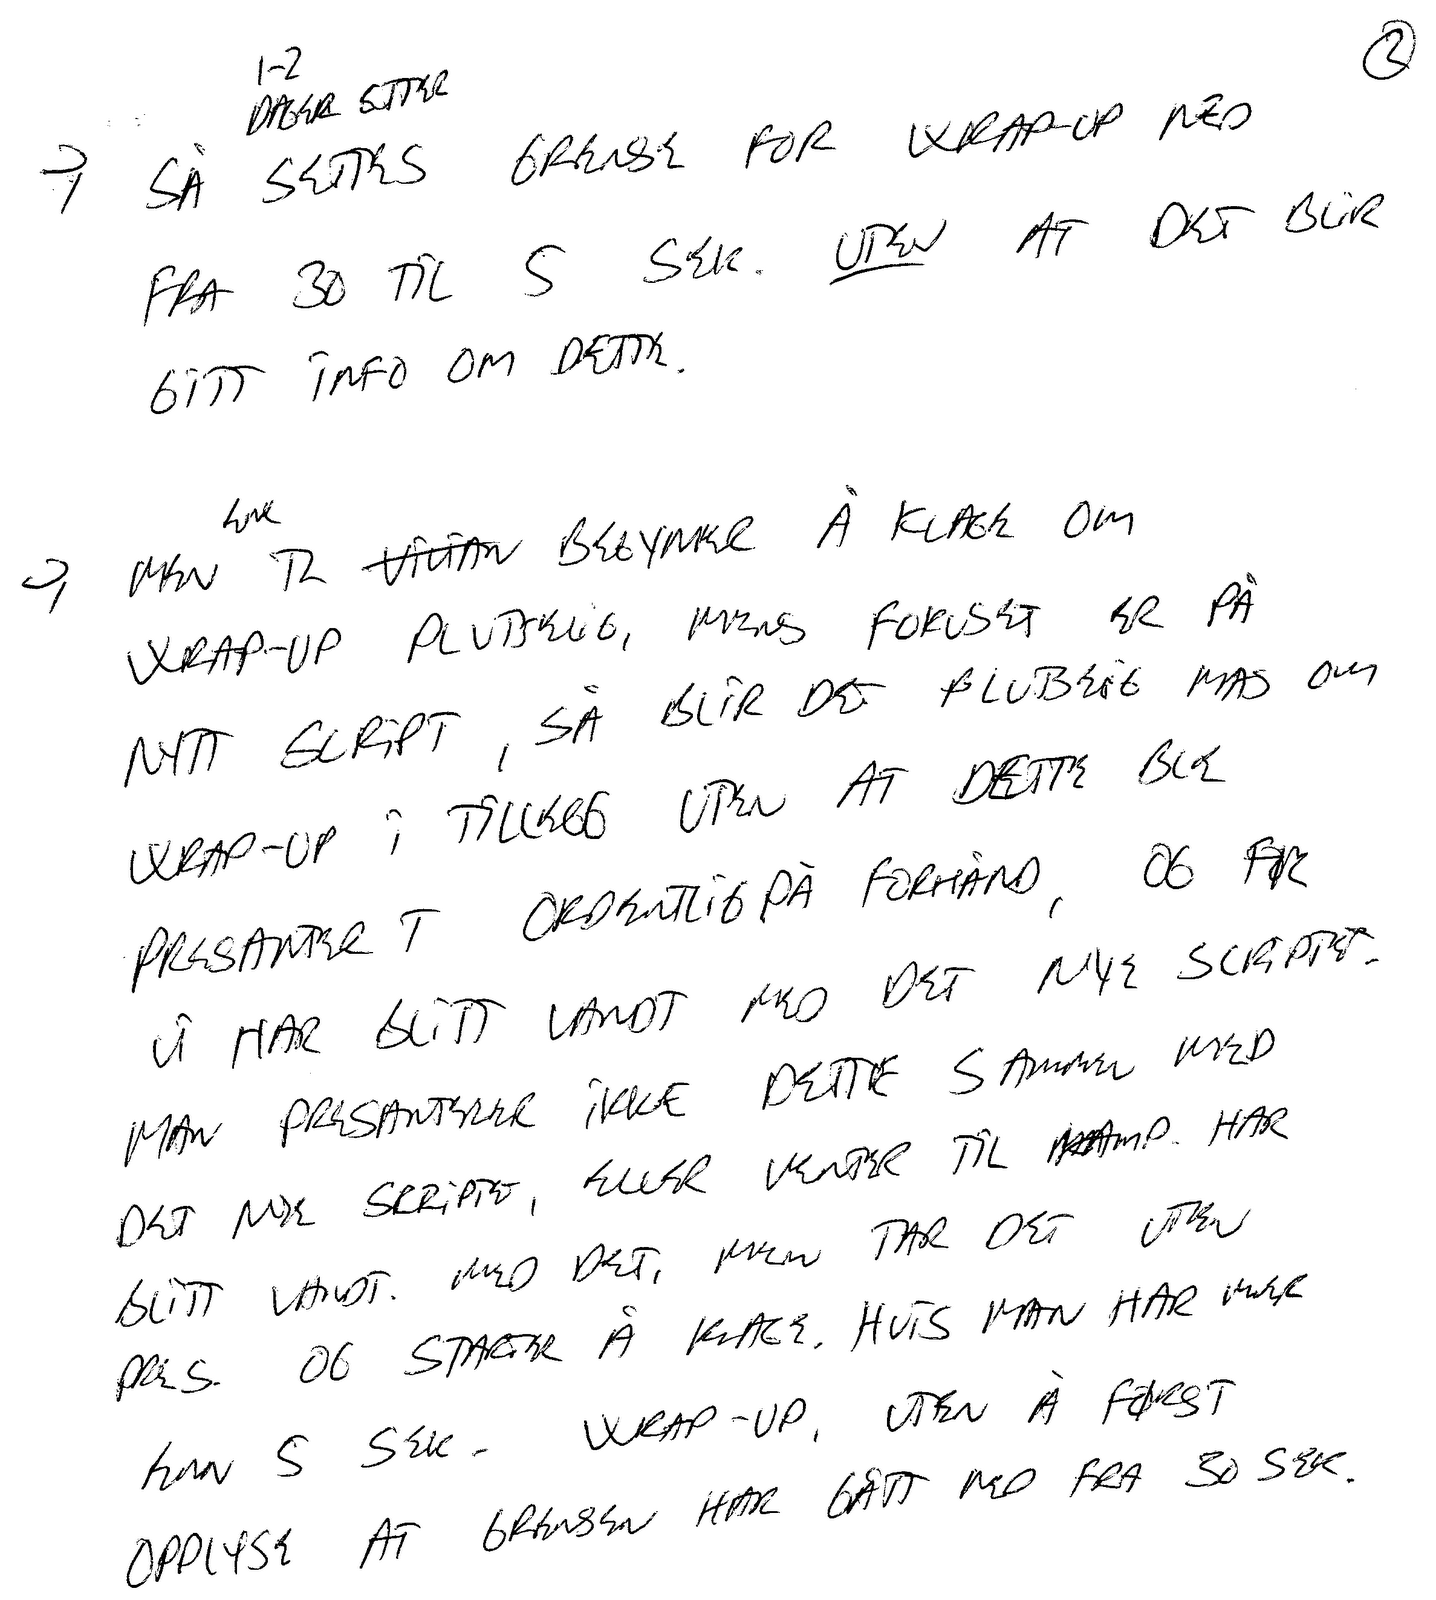 2
1-2
DAGER ETTER
→ SÅ SETTES GRENSE FOR WRAP-UP NED
FRA 30 TIL 5 SEK. UTEN AT DET BLIR
GITT INFO OM DETTE.
→ MEN TL VILIAN BEGYNNER Å KLAGE OM
WRAP-UP PLUTSELIG, MENS FOKUSET ER PÅ
NYTT SCRIPT, SÅ BLIR DET PLUTSELIG MAS OM
WRAP-UP I TILLEGG UTEN AT DETTE BLE
PRESANTERT ORDENTLIG PÅ FORHÅND, OG FØR
VI HAR BLITT VANDT MED DET NYE SCRIPTET.
MAN PRESANTERER IKKE DETTE SAMMEN MED
DET NYE SKRIPTE, ELLER VENTER TIL HAR
BLITT VANDT. MED DET, MEN TAR DET UTEN
PRES. OG STARTER Å KLAGE. HVIS MAN HAR MER
ENN 5 SEK. WRAP-UP, UTEN Å FØRST
OPPLYSE AT GRENSEN HAR GÅTT NED FRA 30 SEK.